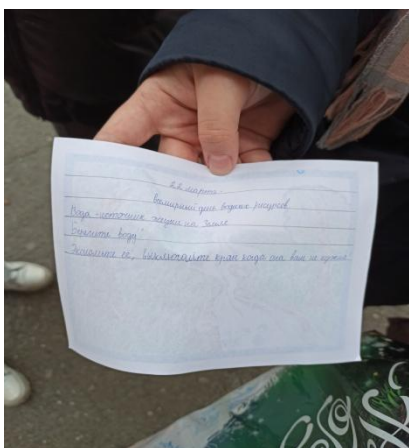 22 марта.
Всемирный день водных ресурсов
Вода - источник жизни на Земле
Берегите воду!
Экономьте её, выключайте кран когда она вам не нужна!